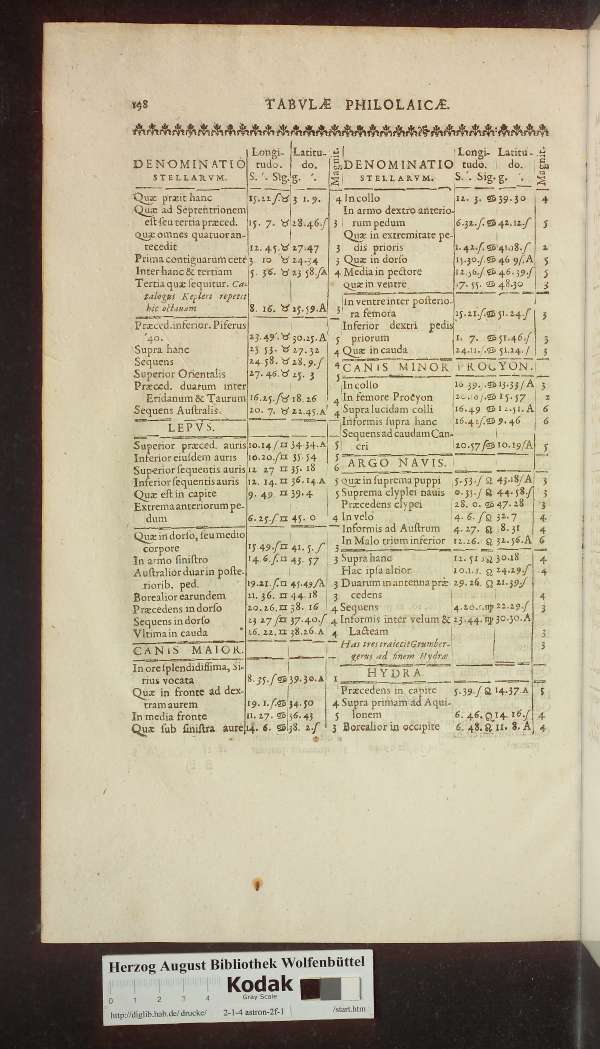 198 TABVLÆ PHILOLAICÆ.
DENOMINATIO STELLARVM. Longi- tudo. S. ′. Sig. Latitu- do. g. ′. Magnit.
Quæ præit hanc 15.22ſ ♉ 3 1. 9. 4
Quæ ad Septentrionem
est seu tertia præced. 15. 7. ♉ 28.46.ſ 3
quæ omnes quatuor an-
tecedit 12. 45. ♉ 27.47 3
Prima contiguarum cete 3 10 ♉ 24.34
Inter hanc & tertiam 5. 36. ♉ 23 58.ſA 4
Tertia quæ sequitur. Ca-
talogus Kepleri repetit
hic octauam 8. 16. ♉ 25.59.A
Præced. inferior. Piferus
40. 23.49. ♉ 30.25.A 5
Supra hanc 23 53. ♉ 27. 32
Sequens 24 58. ♉ 28. 9.ſ
Superior Orientalis 27. 46. ♉ 25. 3
Præced. duarum inter
Eridanum & Taurum 16.25.ſ ♉ 18.26 4
Sequens Australis. 20. 7. ♉ 22.45.A 4
LEPVS.
Superior præced. auris 10.14/ ♊ 34 34.A 5
Inferior eiusdem auris 10.20./ ♊ 35 54 5
Superior sequentis auris 12 27 ♊ 35. 18
Inferior sequentis auris 12. 14. ♊ 36.14.A 5
Quæ est in capite 9. 49 ♊ 39.4 5
Extrema anteriorum pe-
dum 6.25.ſ ♊ 45. 0 4
Quæ in dorso, seu medio
corpore 15 49.ſ ♊ 41. 5. ſ 3
In armo sinistro 14. 6.ſ ♊ 43. 57 3
Australior duar in poste-
riorib. ped. 19.21.ſ ♊ 45.49/A 3
Borealior earundem 21. 36. ♊ 44. 18 3
Præcedens in dorso 20.26. ♊ 38. 16 4
Sequens in dorso 23 27/ ♊ 37.40.ſ 4
Vltima in cauda 26. 22. ♊ 38.26.A 4
CANIS MAIOR.
In ore splendidissima, Si-
rius vocata 8. 35.ſ ♋ 39.30.A 1
Quæ in fronte ad dex-
tram aurem 19. 1.ſ ♋ 34.50 4
In media fronte 11. 27. ♋ 36.43 5
Quæ sub sinistra aure 14. 6. ♋ 38. 2.ſ 3
DENOMINATIO STELLARVM. Longi- tudo. S. ′. Sig. Latitu- do. g. ′. Magnit.
In collo 12. 3. ♋ 39.30 4
In armo dextro anterio-
rum pedum 6.32.ſ ♋ 42.12.ſ 5
Quæ in extremitate pe-
dis prioris 1.42.ſ ♋ 41.18.ſ 2
Quæ in dorso 13.30.ſ ♋ 46 9ſ.A 5
Media in pectore 12.36.ſ ♋ 46.39.ſ 5
quæ in ventre 17. 55. ♋ 48.30 3
In ventre inter posterio-
ra femora 15.21.ſ ♋ 51.24.ſ 3
Inferior dextri pedis
priorum 1. 7. ♋ 51.46.ſ 3
Quæ in cauda 24.11. ♋ 51.24.ſ 3
CANIS MINOR PROCYON.
In collo 16 39. ♋ 13.33/A 3
In femore Procyon ♋ 15.57 2
Supra lucidam colli 16.49 ♋ 12.51.A 6
Informis supra hanc 16.41ſ ♋ 9.46 6
Sequens ad caudam Can-
cri 20.57ſ ♋ 10.19/A 5
ARGO NAVIS.
quæ in suprema puppi 5.53./ ♌ 43.18/A 3
Suprema clyplei nauis 0.33./ ♌ 44.58.ſ 3
Præcedens clypei 28. 0. ♋ 47.28 3
In velo 4. 6. ſ ♌ 32. 7 4
Informis ad Austrum 4. 27. ♌ 8. 31 4
In Malo trium inferior 12.26. ♌ 32.56.A 6
Supra hanc 12. 51 ♌ 30.18 4
Hac ipsa altior ♌ 24.29.ſ 4
Duarum in antenna præ 29. 26. ♌ 21.39ſ
cedens 4
Sequens 4.20. ♍ 22.29.ſ 3
Informis inter velum & 23.44. ♍ 30.30.A
Lacteam 3
Has tres traiecit Grumber-
gerus ad finem Hydræ 3
HYDRA.
Præcedens in capite 5.39.ſ ♌ 14.37.A 5
Supra primam ad Aqui-
lonem 6. 46. ♌ 14. 16.ſ 4
Borealior in occipite 6. 48. ♌ 11. 8. A 4
Herzog August Bibliothek Wolfenbüttel
0 1 2 3 4
Kodak
Gray Scale
http://diglib.hab.de/drucke/ 2-1-4-astron-2f-1 /start.htm